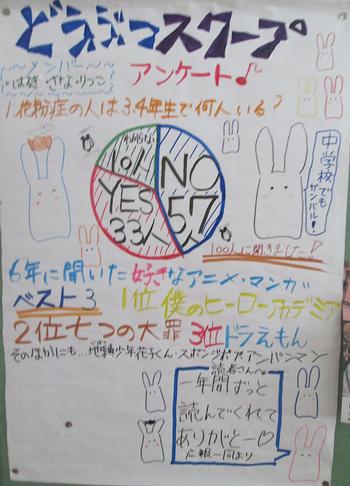 どうぶつスクープ
〜メンバー〜
・はるき さな りっこ
アンケート♪
1.花粉症の人は3.4年生で何人いる?
わからない
10人
NO
57人
YES
33人
中学校でも
ガンバル!
100人に聞きました!
6年に聞いた好きなアニメ・マンガ
ベスト3 1位 僕のヒーローアカデミア
2位 七つの大罪 3位 ドラえもん
そのほかにも…地縛少年花子くん・スポンジボブ・アンパンマン
読者さんへ
一年間ずっと
読んでくれて
ありがとー♡
広報一同より